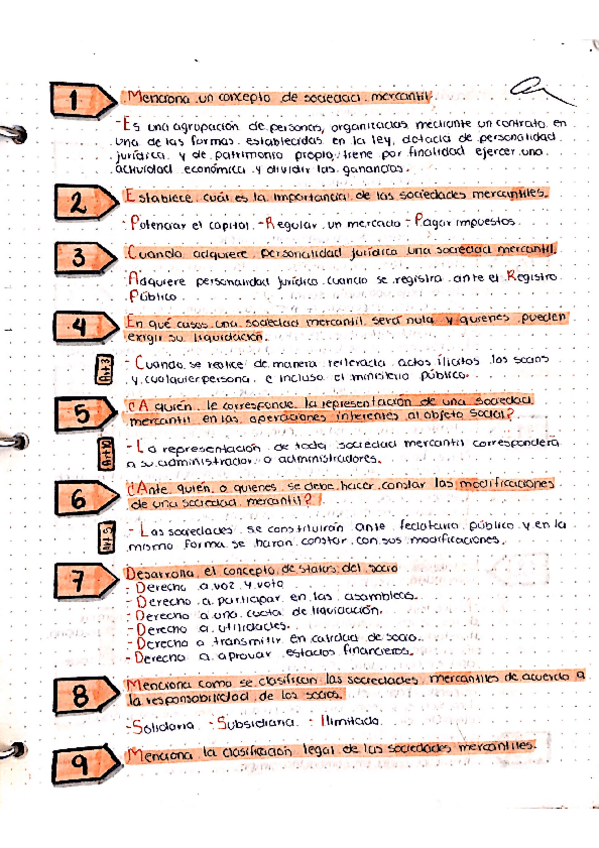 1 Menciona un concepto de sociedad mercantil.
- Es una agrupación de personas, organizadas mediante un contrato en
una de las formas establecidas en la ley, dotada de personalidad
jurídica y de patrimonio propio, tiene por finalidad ejercer una
actividad económica y dividir las ganancias.
2 Establece cuál es la importancia de las sociedades mercantiles.
- Potenciar el capital - Regular un mercado - Pagar impuestos
3 Cuando adquiere personalidad jurídica una sociedad mercantil.
Adquiere personalidad jurídica cuando se registra ante el Registro
Público
4 En qué casos una sociedad mercantil será nula y quienes pueden
exigir su liquidación.
Art 3
- Cuando se realice de manera reiterada actos ilícitos los socios
y cualquier persona e incluso el ministerio público.
5 ¿A quién le corresponde la representación de una sociedad
mercantil en las operaciones inherentes al objeto social?
Art 10
- La representación de toda sociedad mercantil corresponderá
a su administrador o administradores.
6 ¿Ante quién o quienes se debe hacer constar las modificaciones
de una sociedad mercantil?
Art 5
- Las sociedades se constituirán ante fedatario público y en la
misma forma se harán constar con sus modificaciones.
7 Desarrolla el concepto de status del socio
- Derecho a voz y voto
- Derecho a participar en las asambleas.
- Derecho a una cuota de liquidación.
- Derecho a utilidades.
- Derecho a transmitir en calidad de socio.
- Derecho a aprovar estados financieros.
8 Menciona como se clasifican las sociedades mercantiles de acuerdo a
la responsabilidad de los socios.
- Solidaria - Subsidiaria - Ilimitada
9 Menciona la clasificación legal de las sociedades mercantiles.